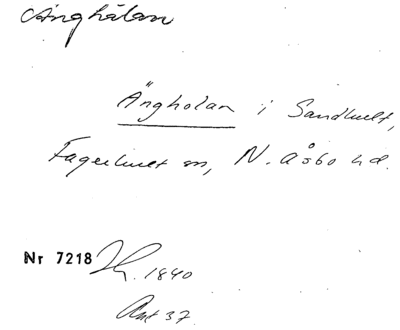 Änghålan
Ängholan i Sandhult,
Fagerhult sn, N. Åsbo hd.
Nr 7218 1840
Ant 37.